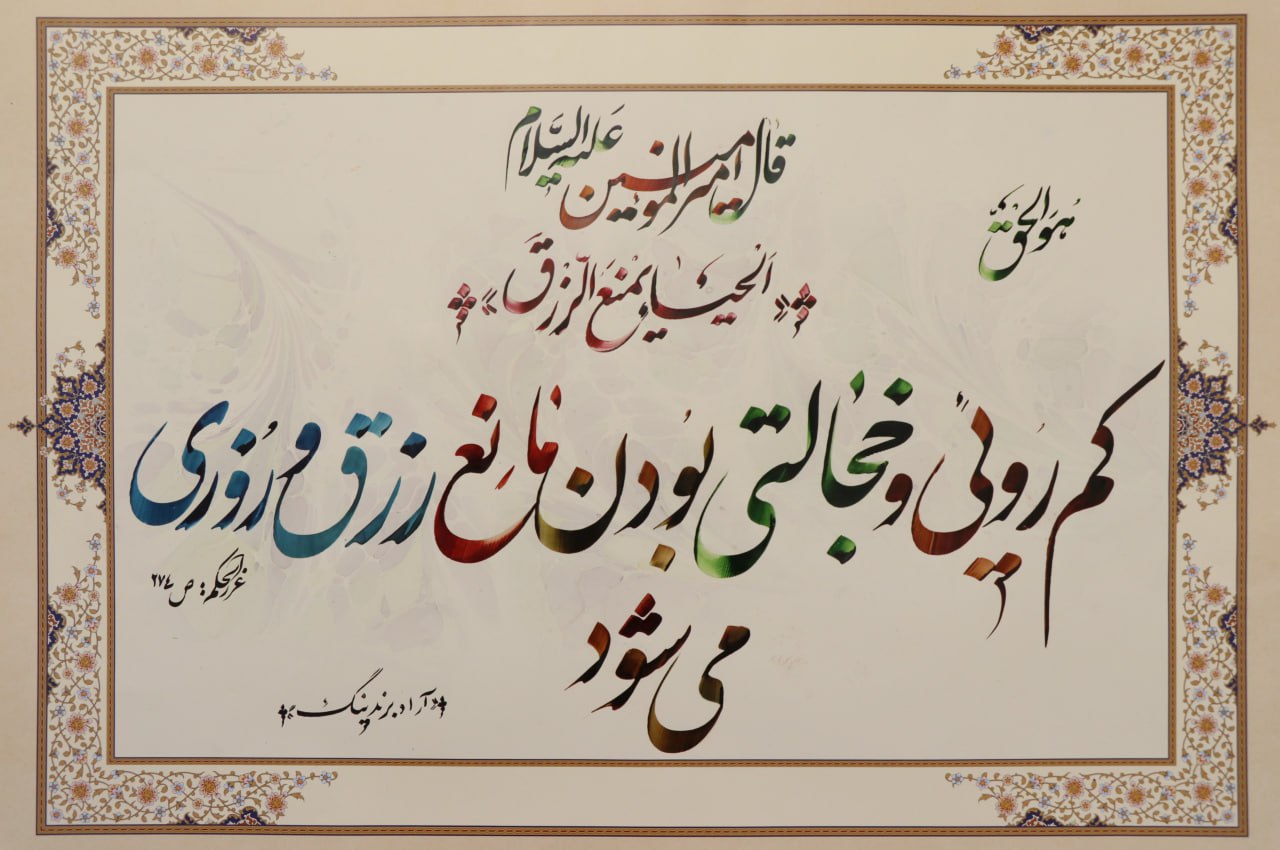 هوالحق
قال امیرالمومنین علیه السلام
«الحیا یمنع الرزق»
کم رویی و خجالتی بودن مانع رزق و روزی
می شود
غررالحکم: ص ۲۷۴
«آراد برندینگ»